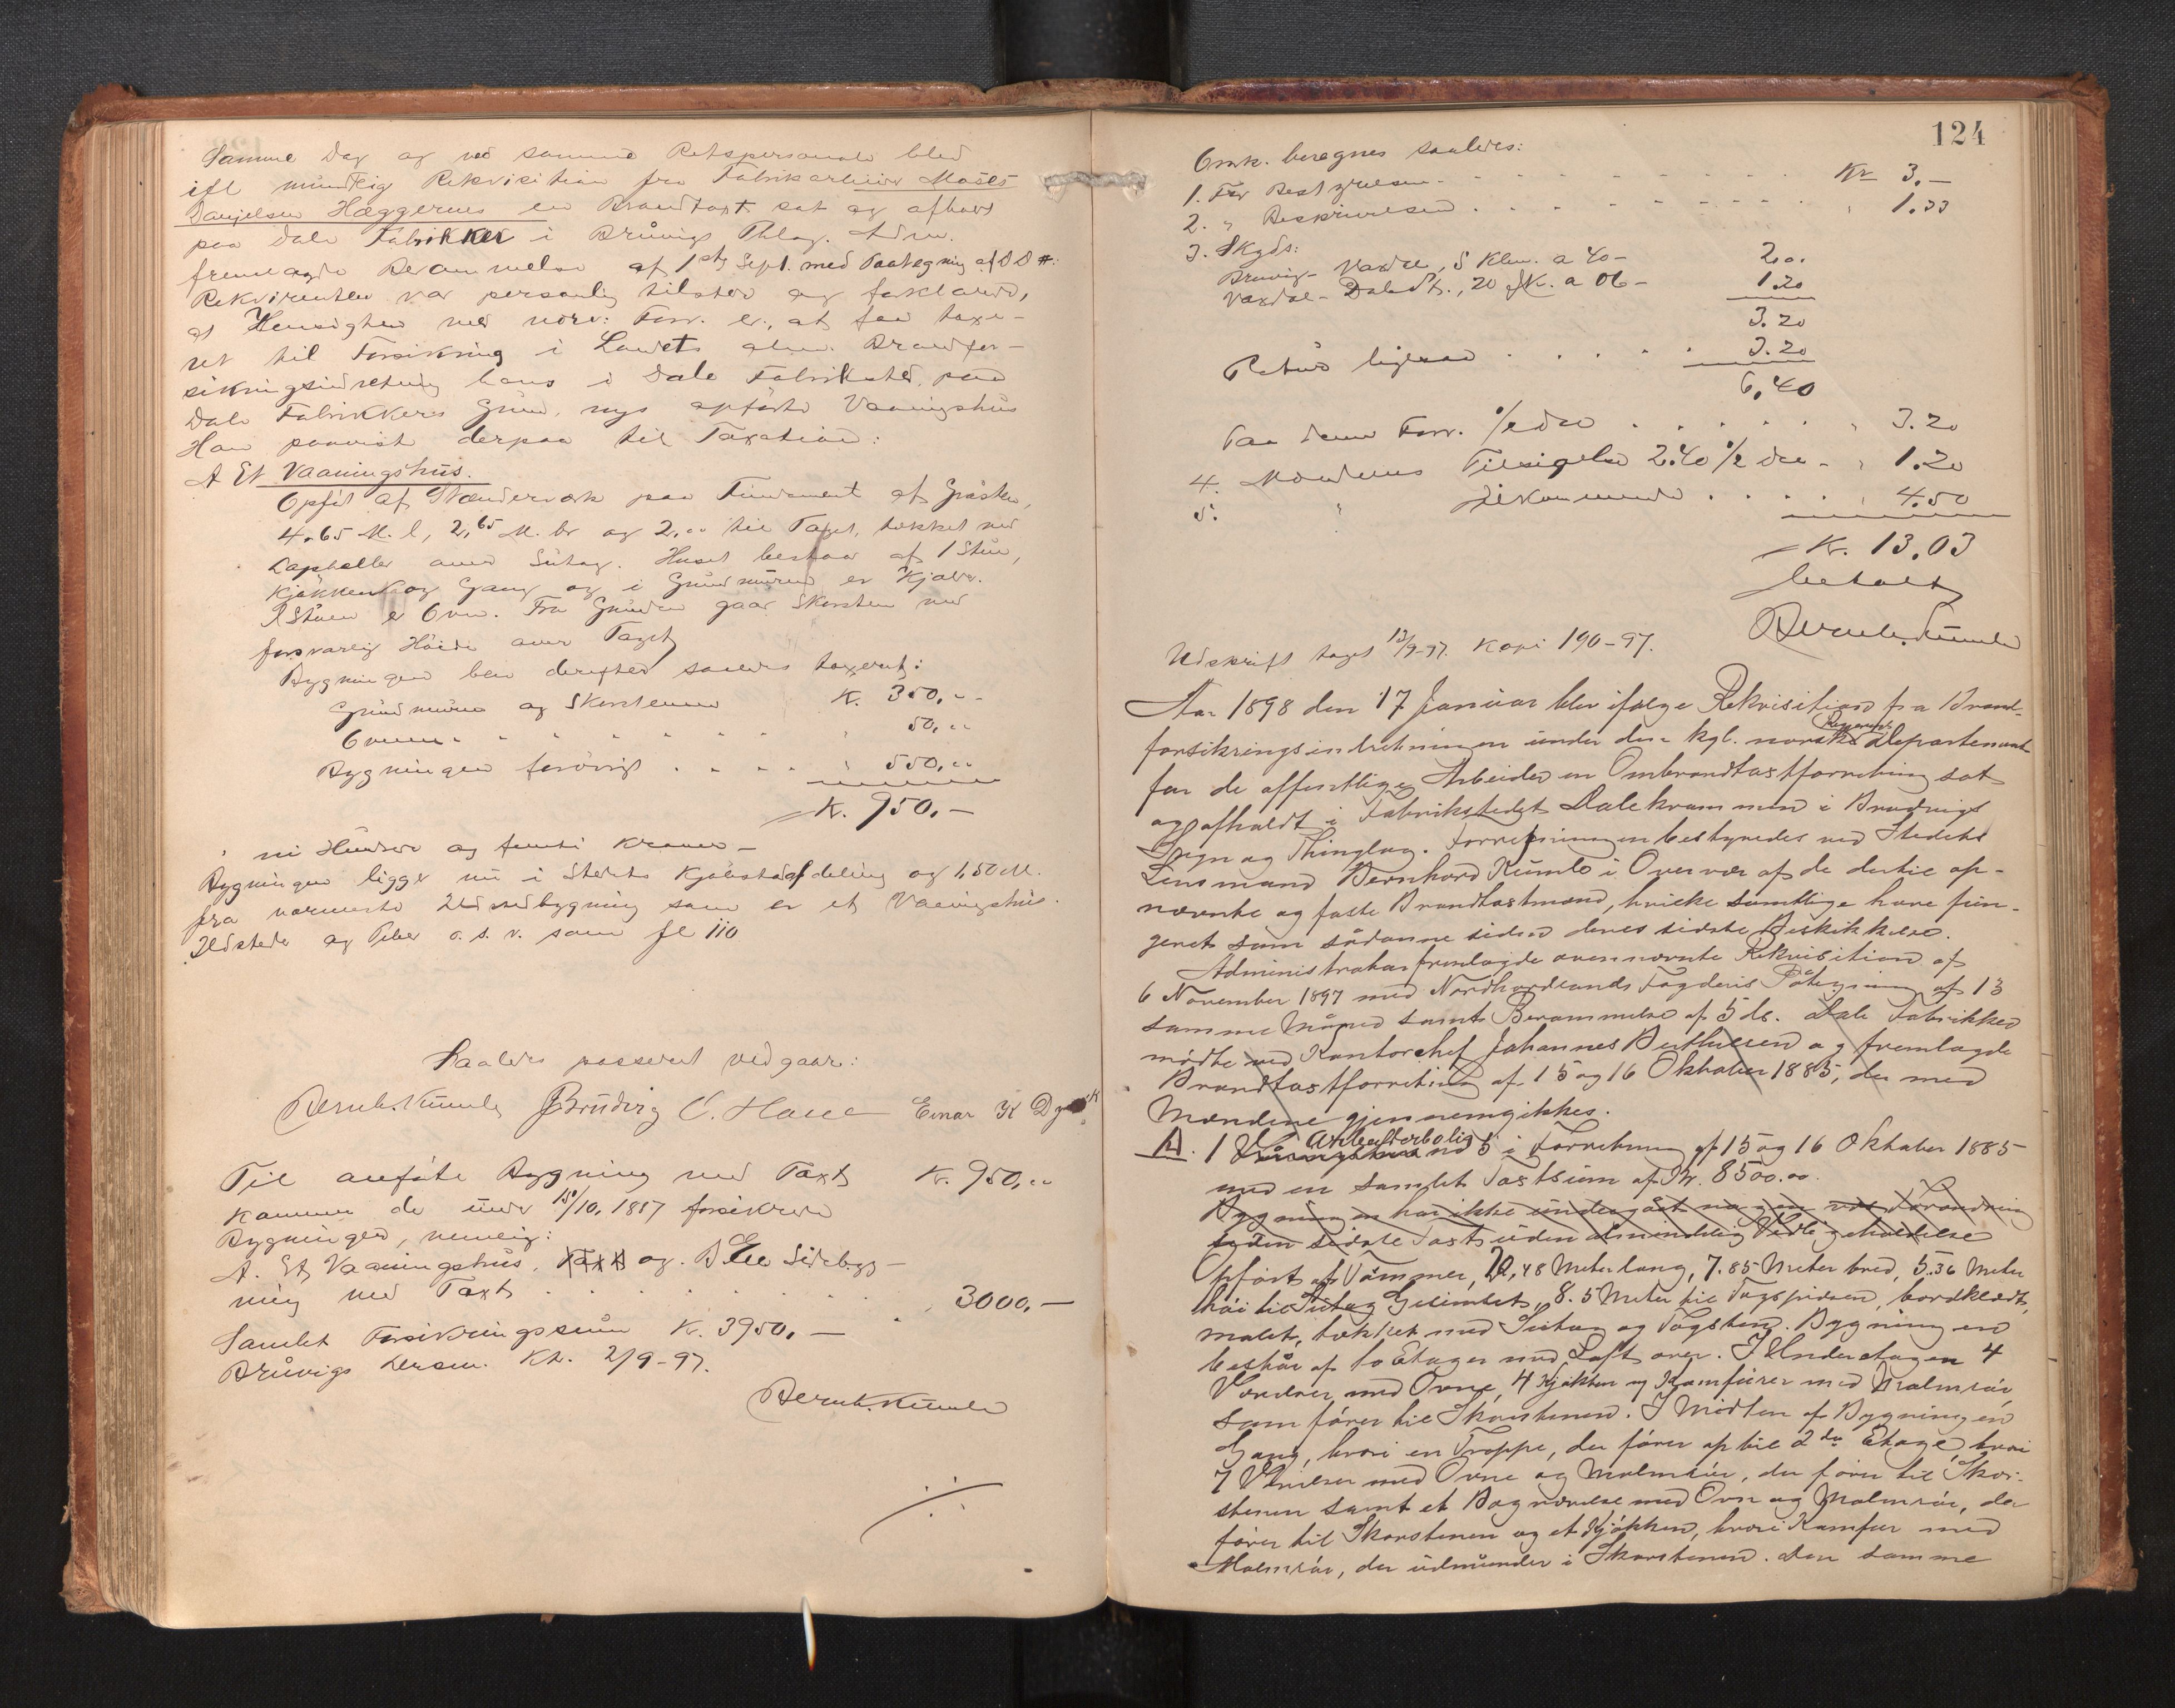 Samme Dag og ved samme Retspersonale blev
ifl mundtlig Rekvisition fra Fabrikarbeider Moses
Danjelsen Hæggernes en Brandtaxt sat og afholdt
paa Dale Fabrikker i Brüvigs Thlag. Adm.
fremlagde Berammelse af 1ste Sept. med Paategning af D D #:
Rekvirenten var personlig tilstede og forklarede,
at Hensigten med nærv: Forr. er, at faa taxe-
ret til Forsikring i Landets alm. Brandfor-
sikringsindretning hans i Dale Fabriksted paa
Dale Fabrikkers Grund nys opførte Vaaningshus
Han paaviste derpaa til Taxation:
A Et Vaaningshus.
Opført af Stænderværk paa Fundament af Graasten,
4.65 M. l, 2,65 M. br og 2,00 til Taget, tækket med
Lapheller over Sutag. Huset bestaar af 1 Stue,
Kjøkken og Gang og i Grundmuren er Kjæld.
I Stuen er Ovn. Fra Grunden gaar Skorsten med
forsvarlig Høide over Taget
Bygningen blev derefter saaledes taxeret:
Grundmuren og Skorstenen K. 350,00
Ovnen 50,00
Bygningen forøvrigt 550,00
K. 950.-
ni Hundrede og femti Kroner -
Bygningen ligger nu i Stedets Kjøbstadafdeling og 1,50 M.
fra nærmeste Udenombygning som er et Vaaningshus.
Ildsteder og Piber o. s. v. som fl 110
Saaledes passeret vedgaar:
Bernh. Kümle J Brüvig O. Helle Einar K Dyvik
Til anførte Bygning med Taxt K. 950,00
kommer de under 15/10, 1887 forsikrede
Bygninger, nemlig:
A. Et Vaaningshus, Taxt og B En Sidebyg-
ning med Taxt 3000,-
Samlet Forsikringssum K. 3950,-
Brüvigs Lensm. Kt. 2/9-97.
Bernh. Kümle
124
Omk. beregnes saaledes:
1. For Bestyrelsen Kr 3.-
2. " Beskrivelsen " 1.33
3. Skyds:
Bruvig - Vaxdal, 5 Klm. a 40 - 2.00
Vaxdal - Dale St., 20 K. a 06 - 1.20
3.20
Retur ligesaa 3.20
6,40
Paa denne Forr. 1/2 dre " 3.20
4. Mændenes Tilsigelse 2.40 1/2 dre - " 1.20
5. " Tilkommende " 4.50
Kr. 13.03
betalt
Bernh. Kümle
Udskrift taget 13/9-97. Kopi 190-97.
Aar 1898 den 17 Januar blev ifølge Rekvisition fra Brand-
forsikringsindretningen under den kgl. norske Regjerings Departement
for de offentlige Arbeider en Ombrandtaxtforretning sat
og afholdt i Fabrikstedet Dalekvammen i Bruvigs
Sogn og Thinglag. Forretningen bestyredes ved Stedets
Lensmand Bernhard Kümle i Overvær af de dertil op-
nævnte og faste Brandtaxtmænd, hvilke samtlige have fun-
geret som sådanne siden deres sidste Beskikkelse.
Administrator fremlagde ovennævnte Rekvisition af
6 November 1897 med Nordhordlands Fogderis Påtegning af 13
samme Måned samt Berammelse af 5 ds. Dale Fabrikker
mødte ved Kontorchef Johannes Berthelsen og fremlagde
Brandtaxtforretning af 15 og 16 Oktober 1885, der med
Mændene gjennemgikkes.
A. 1 Våningshus Arbeiderbolig no 5 i Forretning af 15 og 16 Oktober 1885
med en samlet Taxtsum af Kr. 8500.00.
Bygningen har ikke undergået nogen Forandring
siden sidste Taxt uden almindelig Vedligeholdelse
Opført af Tømmer, 12,48 Meter lang, 7.85 Meter bred, 5.36 Meter
høi til Sutag Gesimset, 8.5 Meter til Tagspidsen, bordklædt,
malet, tækket med Sutag og Tagsten. Bygningen
består af to Etager med Loft over. I Underetagen 4
Værelser med Ovne, 4 Kjøkken og Komfurer med Malmrør,
som fører til Skorstenen. I Midten af Bygningen
Gang, hvori en Trappe, der fører op til 2den Etage, hvori
7 Værelser med Ovne og Malmrør, der fører til Skor-
stenen samt et Bagværelse med Ovn og Malmrør, der
fører til Skorstenen og et Kjøkken, hvori Komfur med
Malmrør, der udmunder i Skorstenen. Den samme